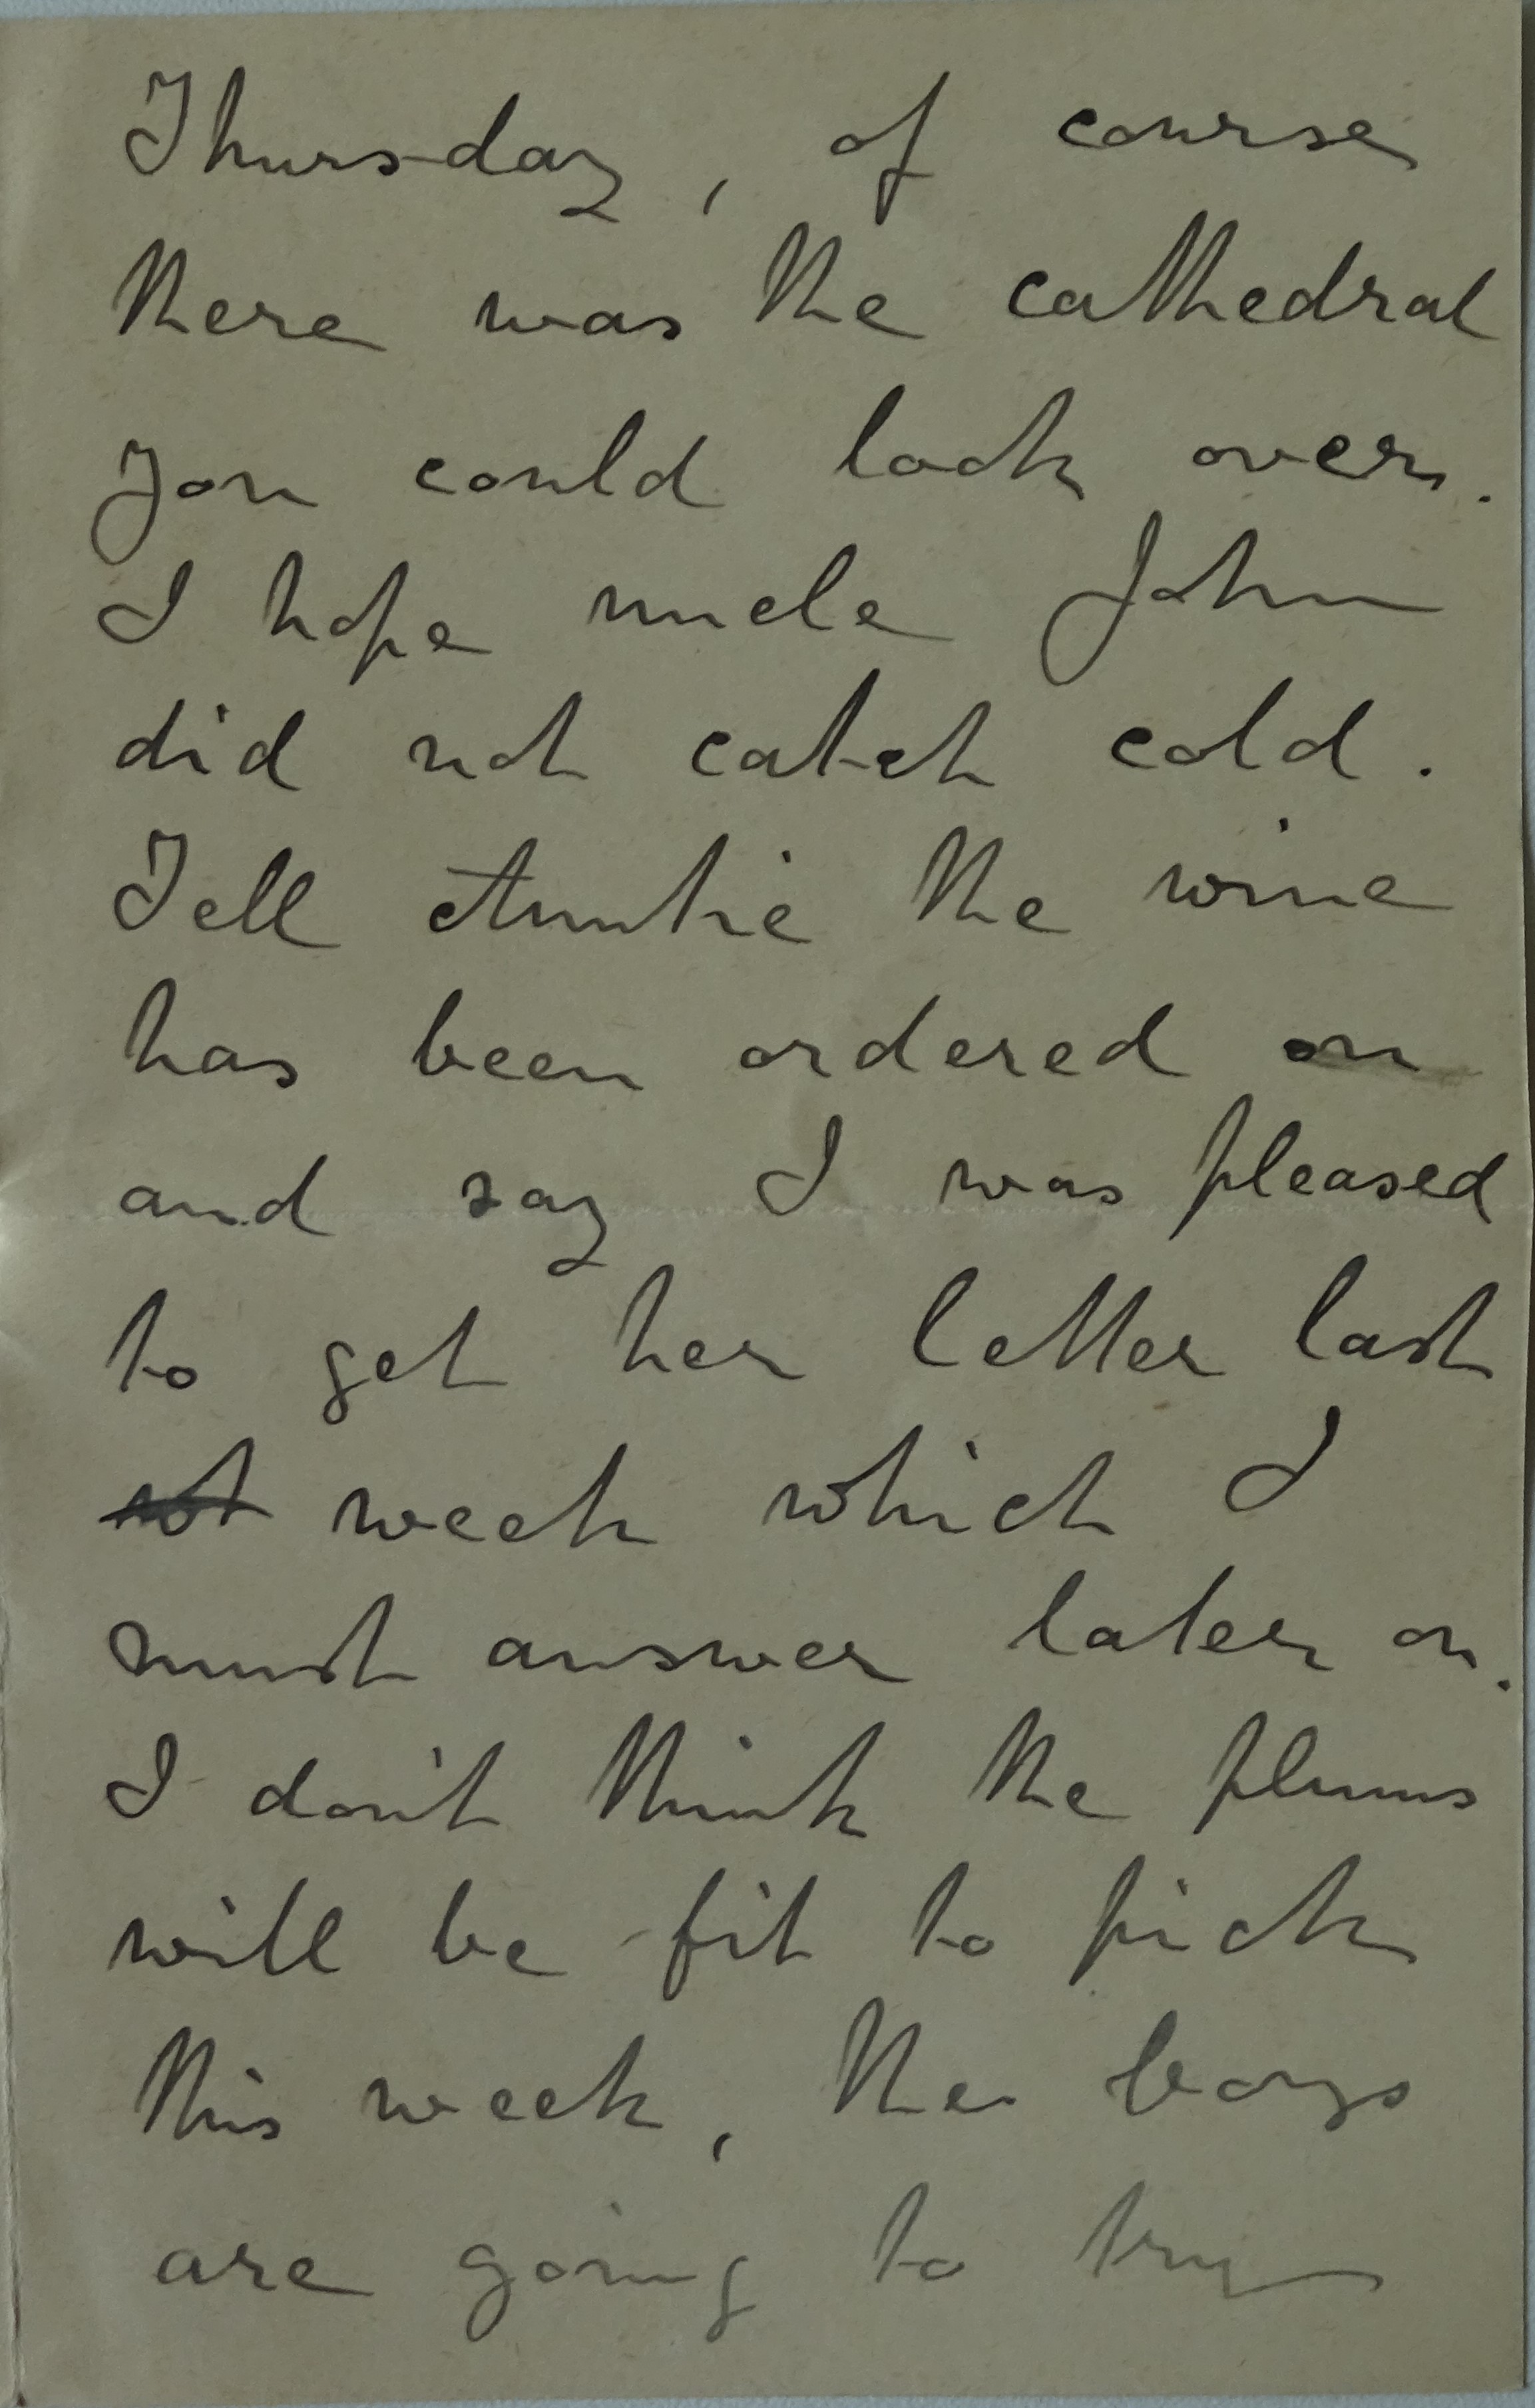 Thursday, of course
there was the cathedral
you could look over.
I hope uncle John
did not catch cold.
Tell Auntie the wine
has been ordered on
and say I was pleased
to get her letter last
week which I
must answer later on.
I don't think the plums
will be fit to pick
this week, the boys
are going to try